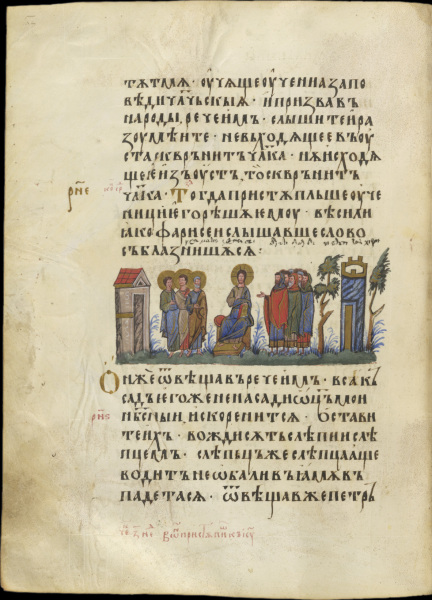 тѫтмѧ · оучѧще оученїа запо
вѣди чл҃чьскыѧ · и призвавъ
народы, рече имъ · слышите и ра
зоумѣите · не въходѧщее въ оу
ста сквръни́тъ чл҃ка · нѫ исходѧ
щеѥ изъ оустъ, то сквръни́тъ
рн҃е
чл҃ка · Тогда пристѫпльше оуче
ници его рѣшѫ емоу · вѣси ли
ꙗко фарисеи слышавше слово
съблазнишѧсѧ :
Онже ѿвѣщавъ рече имъ · всакъ
садъ егоже не насади ѡц҃ъ мои
рн҃ѕ
нб҃сныи, искоренитсѧ · Остави
те ихъ · вожди сѫть слѣпи и слѣ
пцемъ · слѣпцъ же слѣпца аще
водитъ не ѡба ли въ ꙗмѫ въ
падетасѧ · ѿвѣщав же петръ